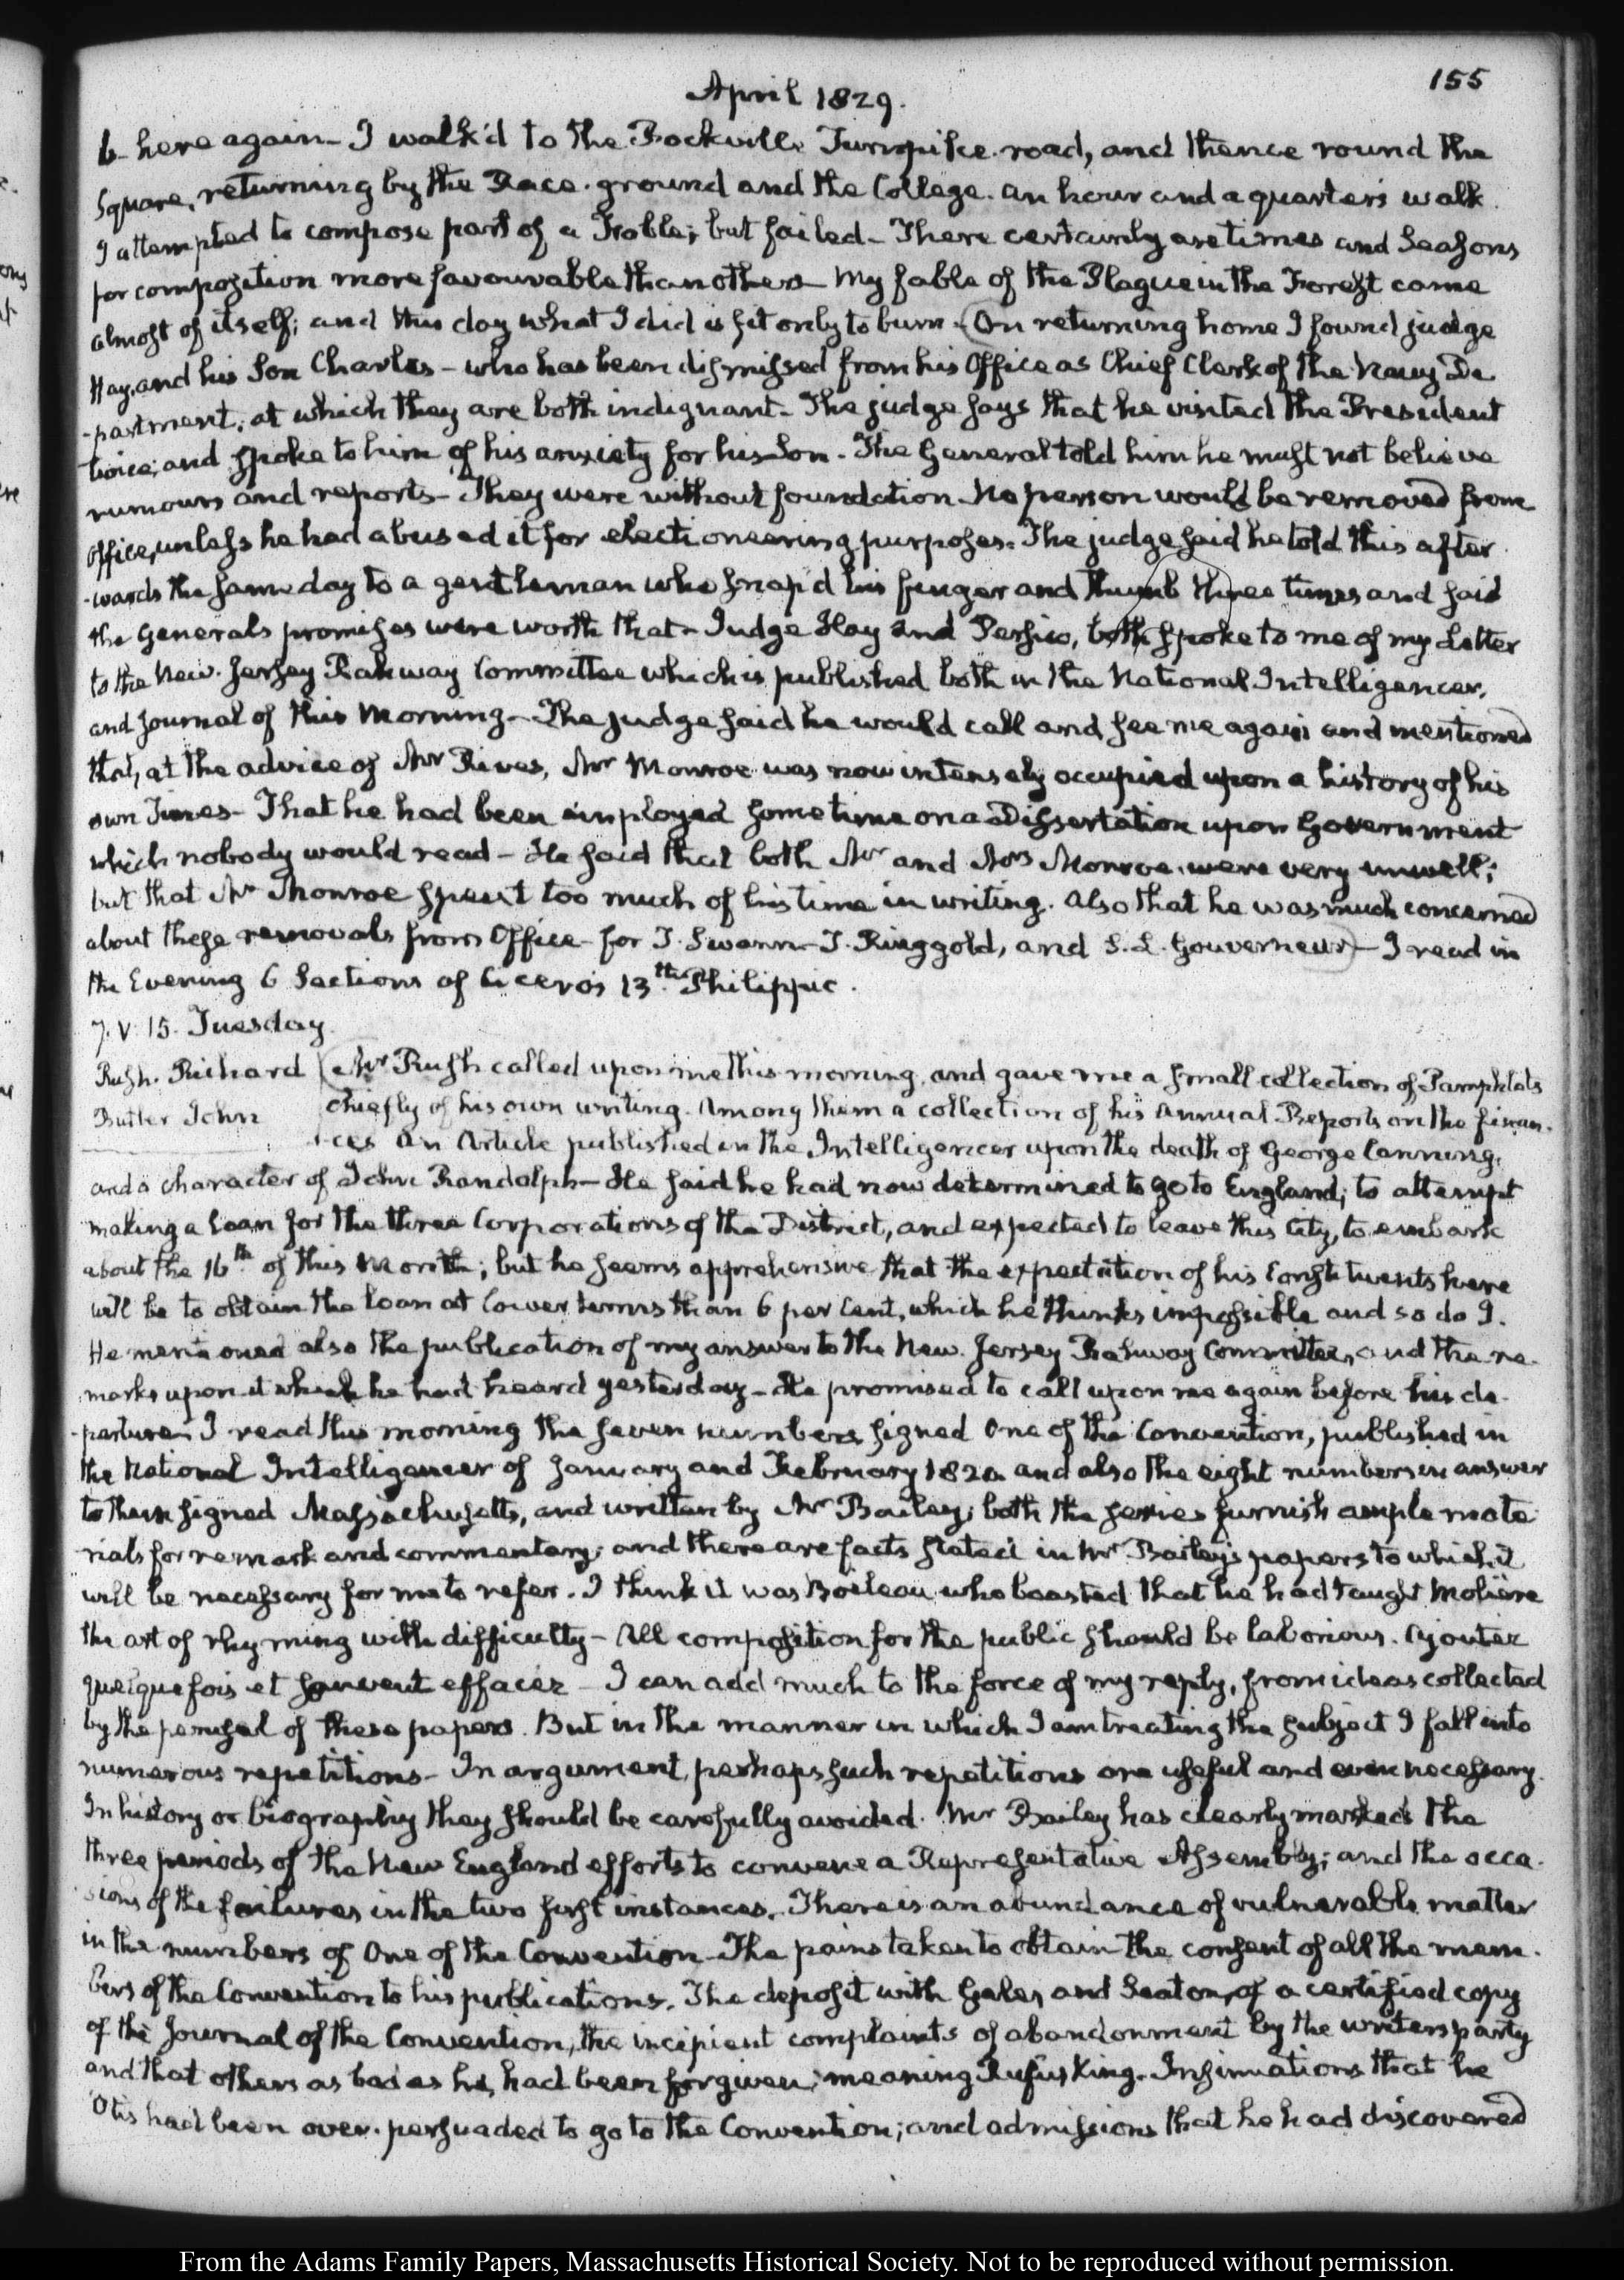 155
April 1829.
6- here again- I walk'd to the Rockville Turnpike road, and thence round the
Square, returning by the Race-ground and the College. an hour and a quarter's walk.
I attempted to compose part of a Fable; but failed- There certainly are times and Seasons
for composition more favourable than others- My fable of the Plague in the Forest came
almost of itself; and this day what I did is fit only to burn. On returning home I found judge
Hay, and his Son Charles- who has been dismissed from his Office as Chief Clerk of the Navy De
-partment; at which they are both indignant- The judge says that he visited the President
twice, and spoke to him of his anxiety for his Son- The General told him he must not believe
rumours and reports- They were without foundation- No person would be removed from
Office, unless he had abused it for electioneering purposes. The judge said he told this after
-wards the same day to a gentleman who snap'd his finger and thumb three times and said
the Generals promises were worth that- Judge Hay and Persico, both spoke to me of my Letter
to the New-Jersey Rahway Committee which is published both in the National Intelligencer,
and Journal of this Morning- The Judge said he would call and see me again and mentioned
that, at the advice of Mr Rives, Mr Monroe was now intensely occupied upon a history of his
own Times- That he had been employed sometime on a Dissertation upon Government
which nobody would read- He said that both Mr and Mrs Monroe were very unwell;
but that Mr Monroe spent too much of his time in writing. Also that he was much concerned
about these removals from Office- for T. Swann- T. Ringgold, and S. L. Gouverneur- I read in
the Evening 6 Sections of Cicero's 13th. Philippic.
7. V. 15. Tuesday.
Rush. Richard Mr Rush called upon me this morning, and gave me a small collection of Pamphlets
Butler John chiefly of his own writing. Among them a collection of his Annual Reports on the finan-
-ces An Article published in the Intelligencer upon the death of George Canning,
and a character of John Randolph- He said he had now determined to go to England; to attempt
making a Loan for the three Corporations of the District, and expected to leave this City, to embark
about the 16th of this Month; but he seems apprehensive that the expectation of his Constituents here
will be to obtain the Loan at lower terms than 6 per Cent, which he thinks impossible and so do I.
He mentioned also the publication of my answer to the New-Jersey Rahway Committee, and the re-
marks upon it which he had heard yesterday- He promised to call upon me again before his de-
-parture- I read this morning the seven numbers signed One of the Convention, published in
the National Intelligencer of January and February 1820 and also the eight numbers in answer
to them signed Massachusetts, and written by Mr Bailey; both the series furnish ample mate
-rials for remark and commentary; and there are facts stated in Mr Bailey's papers to which it
will be necessary for me to refer. I think it was Boileau who boasted that he had taught Moliere
the art of rhyming with difficulty- All composition for the public should be laborious. Ajoutez
quelquefois et souvent effacez- I can add much to the force of my reply, from ideas collected
by the perusal of these papers. But in the manner in which I am treating the subject I fall into
numerous repetitions- In argument, perhaps such repetitions are useful and even necessary.
In history or biography they should be carefully avoided. Mr Bailey has clearly marked the
three periods of the New England efforts to convene a Representative Assembly; and the occa-
sions of the failures in the two first instances. There is an abundance of vulnerable matter
in the numbers of One of the Convention- The pains taken to obtain the consent of all the mem-
bers of the Convention to his publications. The deposit with Gales and Seaton, of a certified copy
of the Journal of the Convention, the incipient complaints of abandonment by the writers party
and that others as bad as he, had been forgiven; meaning Rufus King- Insinuations that he
Otis had been over-persuaded to go to the Convention; and admissions that he had discovered
From the Adams Family Papers, Massachusetts Historical Society. Not to be reproduced without permission.